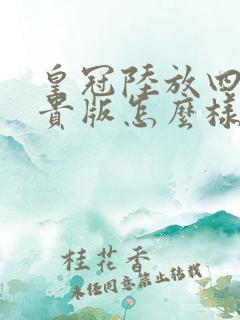 皇冠陸放四
貴版怎麼樣
桂花香
未經同意禁止轉載